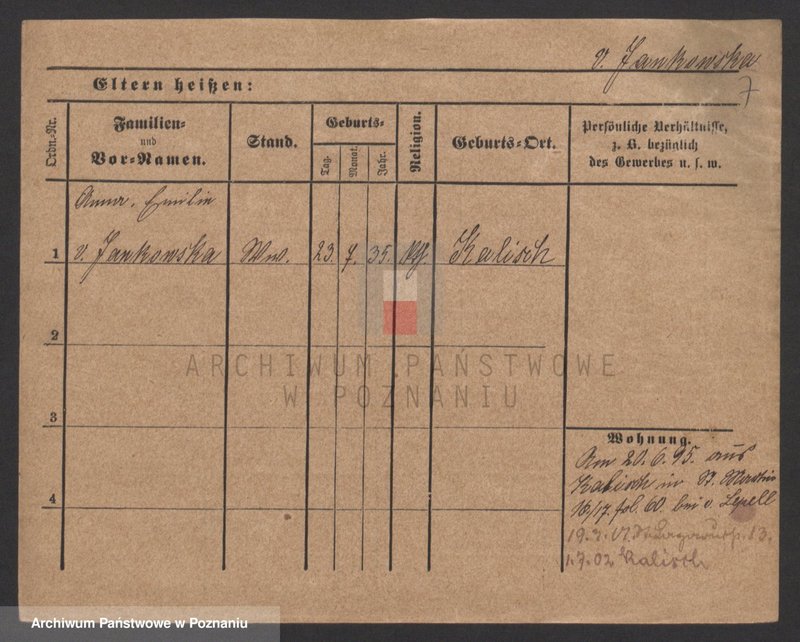 v. Jankowska
7
Eltern heißen:
Ordn.-Nr.
Familien-
und
Vor-Namen.
Stand.
Geburts-
Tag.
Monat.
Jahr.
Religion.
Geburts-Ort.
Persönliche Verhältnisse,
z. B. bezüglich
des Gewerbes u. s. w.
Anna, Emilie
1 v. Jankowska Ww. 23. 7. 35. kth. Kalisch
2
3
4
ARCHIWUM PAŃSTWOWE
W POZNANIU
Wohnung.
Am 20.6.95. aus
Kalisch in St. Martin
16/17. fol. 60 bei v. Lepell
13.
1.7.02 Kalisch
Archiwum Państwowe w Poznaniu